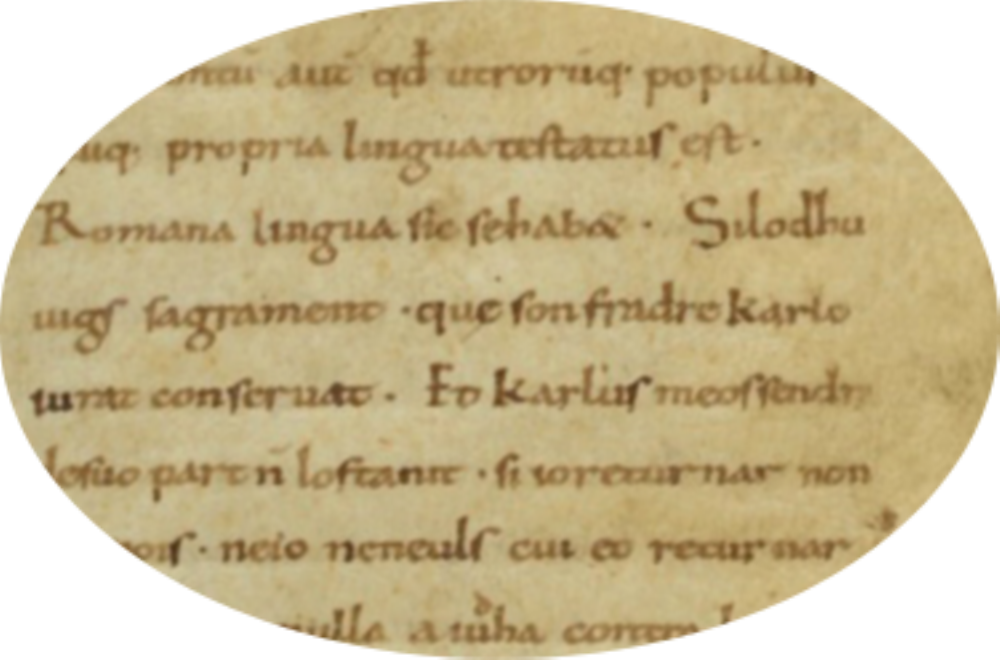 aut qđ utrorūq; populus
propria lingua testatus est.
Romana lingua sic se habet. Silodhu
uigs sagrament. que son fradre karlo
iurat conseruat. Et karlus meossendra
desuo part n̄ lostanit. si ioreturnar non
pois. neio neneuls cui eo returnar
nulla aiuha contra